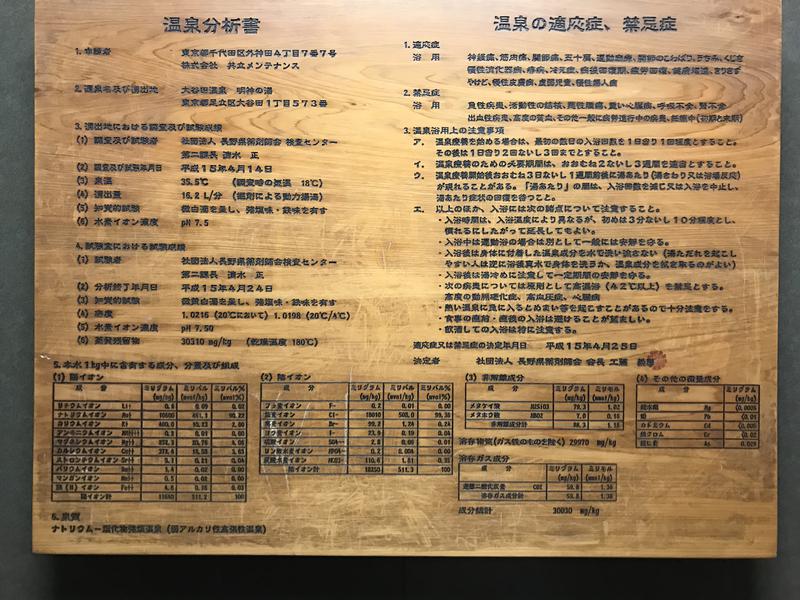 温泉分析書
1. 申請者 東京都千代田区外神田4丁目7番7号
株式会社 共立メンテナンス
2. 源泉名及び湧出地 大谷田温泉 明神の湯
東京都足立区大谷田1丁目573番
3. 湧出地における調査及び試験成績
(1) 調査及び試験者 社団法人 長野県薬剤師会 検査センター
第二課長 清水 正
(2) 調査及び試験年月日 平成15年4月14日
(3) 泉温 35.5℃ (調査時の気温 18℃)
(4) 湧出量 16.2 L/分 (掘削による動力揚湯)
(5) 知覚的試験 微白濁を呈し、強塩味・鉄味を有す
(6) 水素イオン濃度 pH 7.5
4. 試験室における試験成績
(1) 試験者 社団法人長野県薬剤師会検査センター
第二課長 清水 正
(2) 分析終了年月日 平成15年4月24日
(3) 知覚的試験 微黄白濁を呈し、強塩味・鉄味を有す
(4) 密度 1.0216 (20℃において) 1.0198 (20℃/4℃)
(5) 水素イオン濃度 pH 7.50
(6) 蒸発残留物 30310 mg/kg (乾燥温度 180℃)
5. 本水1kg中に含有する成分、分量及び組成
(1) 陽イオン
成 分 ミリグラム (mg/kg) ミリバル (mval/kg) ミリバル% (mval%)
リチウムイオン
ナトリウムイオン
カリウムイオン
アンモニウムイオン
マグネシウムイオン
カルシウムイオン
ストロンチウムイオン
バリウムイオン
マンガンイオン
鉄(Ⅱ)イオン
陽イオン計 511.2 100
(2) 陰イオン
成 分 ミリグラム (mg/kg) ミリバル (mval/kg) ミリバル% (mval%)
フッ素イオン F- 0.2 0.01 0.00
塩素イオン Cl-
臭素イオン Br- 99.2 1.24 0.24
ヨウ素イオン I-
硫酸イオン
リン酸水素イオン
炭酸水素イオン
陰イオン計 511.3 100
(3) 非解離成分
成 分 ミリグラム (mg/kg) ミリモル (mmol/kg)
メタケイ酸 H2SiO3 79.3 1.02
メタホウ酸 HBO2 7.0 0.16
非解離成分計 86.3 1.18
溶存物質(ガス性のものを除く) 29970 mg/kg
溶存ガス成分
成 分 ミリグラム (mg/kg) ミリモル (mmol/kg)
遊離二酸化炭素 CO2 59.8 1.36
溶存ガス成分計 59.8 1.36
成分総計 30030 mg/kg
(4) その他の微量成分
成 分 ミリグラム (mg/kg)
総水銀 Hg <0.0005
鉛 Pb
カドミウム Cd
総クロム Cr
総ヒ素 As
6. 泉質
ナトリウム－塩化物強塩温泉 (弱アルカリ性高張性温泉)
温泉の適応症、禁忌症
1. 適応症
浴 用 神経痛、筋肉痛、関節痛、五十肩、運動麻痺、関節のこわばり、うちみ、くじき
慢性消化器病、痔病、冷え症、病後回復期、疲労回復、健康増進、きりきず
やけど、慢性皮膚病、虚弱児童、慢性婦人病
2. 禁忌症
浴 用 急性疾患、活動性の結核、悪性腫瘍、重い心臓病、呼吸不全、腎不全
出血性疾患、高度の貧血、その他一般に病勢進行中の疾患、妊娠中(初期と末期)
3. 温泉浴用上の注意事項
ア. 温泉療養を始める場合は、最初の数日の入浴回数を1日当り1回程度とすること。
その後は1日当り2回ないし3回までとすること。
イ. 温泉療養のための必要期間は、おおむね2ないし3週間を適当とすること。
ウ. 温泉療養開始後おおむね3日ないし1週間前後に湯あたり(湯さわり又は浴場反応)
が現れることがある。「湯あたり」の間は、入浴回数を減じ又は入浴を中止し、
湯あたり症状の回復を待つこと。
エ. 以上のほか、入浴には次の諸点について注意すること。
・入浴時間は、入浴温度により異なるが、初めは3分ないし10分程度とし、
慣れるにしたがって延長してもよい。
・入浴中は運動浴の場合は別として一般には安静を守る。
・入浴後は身体に付着した温泉成分を水で洗い流さない (湯ただれを起こし
やすい人は逆に浴後真水で身体を洗うか、温泉成分を拭き取るのがよい)
・入浴後は湯冷めに注意して一定期間の安静を守る。
・次の疾患については原則として高温浴 (42℃以上) を禁忌とする。
高度の動脈硬化症、高血圧症、心臓病
・熱い温泉に急に入るとめまい等を起こすことがあるので十分注意をする。
・食事の直前・直後の入浴は避けることが望ましい。
・飲酒しての入浴は特に注意する。
適応症又は禁忌症の決定年月日 平成15年4月25日
決定者 社団法人 長野県薬剤師会 会長 工藤